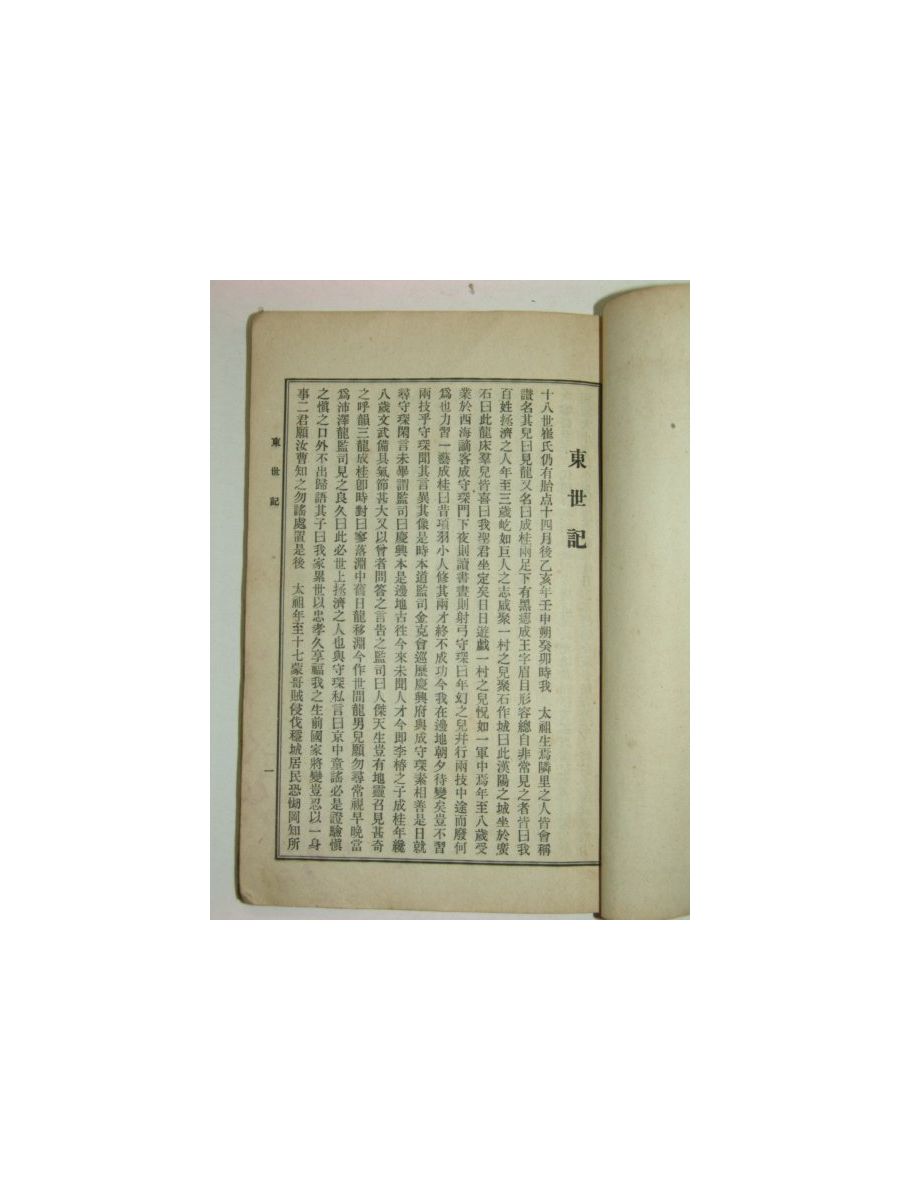 東世記
十八世崔氏仍有胎点十四月後乙亥年壬申朔癸卯時我　太祖生焉隣里之人皆會稱
讃名其兒曰見龍又名曰成桂兩足下有黑痣成王字眉目形容總自非常見之者皆曰我
百姓拯濟之人年至三歲屹如巨人之志咸聚一村之兒聚石作城曰此漢陽之城坐於廣
石曰此龍床羣兒皆喜曰我聖君坐定矣日日遊戱一村之兒悅如一軍中焉年至八歲受
業於西海謫客成守琛門下夜則讀書晝則射弓守琛曰年幻之兒并行兩技中途而廢何
爲也力習一藝成桂曰昔項羽小人修其兩才終不成功今我在邊地朝夕待變矣豈不習
兩技乎守琛聞其言異其像是時本道監司金克會巡歷慶興府與成守琛素相善是日就
尋守琛閑言未畢謂監司曰慶興本是邊地古徃今來未聞人才今即李椿之子成桂年纔
八歲文武備具氣節甚大又以曾者問答之言告之監司曰人傑天生豈有地靈召見甚奇
之呼韻三龍成桂卽時對曰寥落淵中舊日龍移淵今作世間龍男兒願勿尋常視早晚當
爲沛澤龍監司見之良久曰此必世上拯濟之人也與守琛私言曰京中童謠必是證驗愼
之愼之口外不出歸語其子曰我家累世以忠孝久享福我之生前國家將變豈忍以一身
事二君願汝曹知之勿謠處置是後　太祖年至十七蒙哥賊侵伐穩城居民恐㥘罔知所
東世記
一